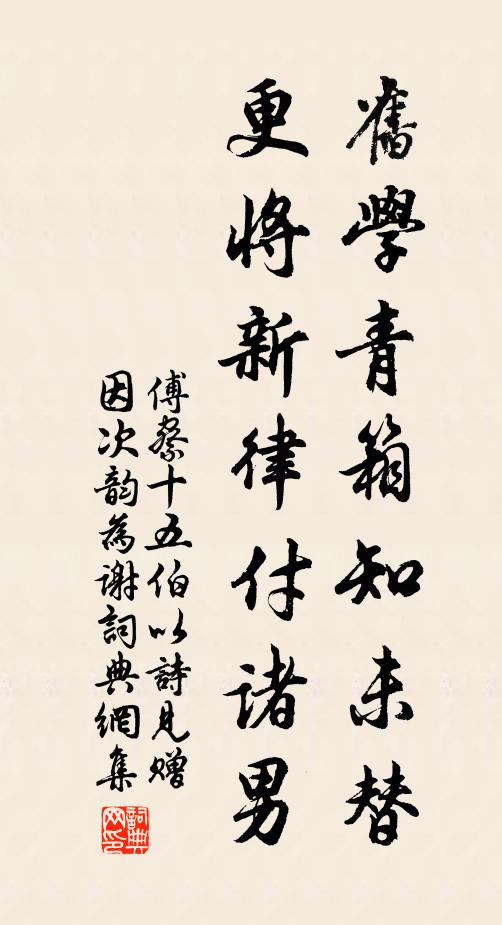 舊學青箱知未替
更將新律付諸男
傅祭十五伯以詩見贈
因次韵為謝詞典網集
詞典
网印